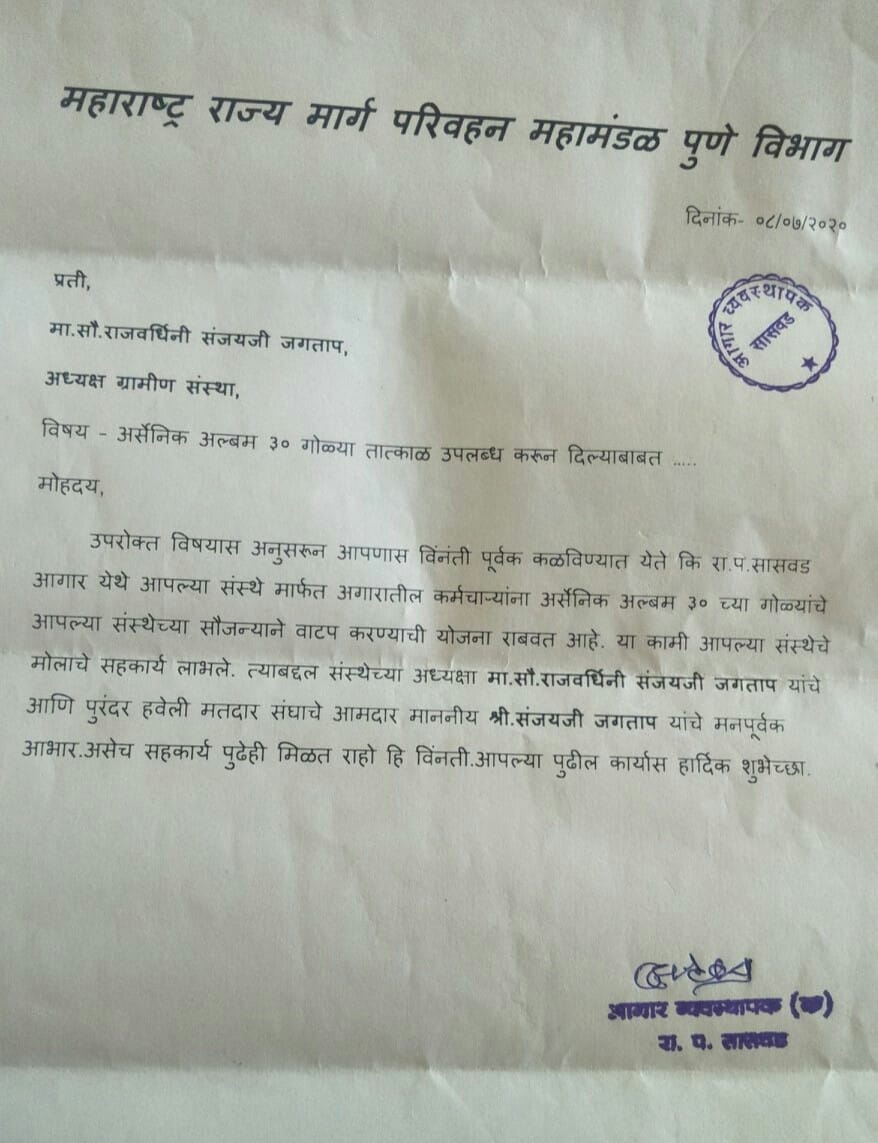 महाराष्ट्र राज्य मार्ग परिवहन महामंडळ पुणे विभाग
दिनांक- ०८/०७/२०२०
प्रती,
आगार व्यवस्थापक
सासवड
मा.सौ.राजवर्धिनी संजयजी जगताप,
अध्यक्ष ग्रामीण संस्था,
विषय - अर्सेनिक अल्बम ३० गोळ्या तात्काळ उपलब्ध करून दिल्याबाबत .....
मोहदय,
उपरोक्त विषयास अनुसरून आपणास विंनंती पूर्वक कळविण्यात येते कि रा.प.सासवड
आगार येथे आपल्या संस्थे मार्फत अगारातील कर्मचाऱ्यांना अर्सेनिक अल्बम ३० च्या गोळ्यांचे
आपल्या संस्थेच्या सौजन्याने वाटप करण्याची योजना राबवत आहे. या कामी आपल्या संस्थेचे
मोलाचे सहकार्य लाभले. त्याबद्दल संस्थेच्या अध्यक्षा मा.सौ.राजवर्धिनी संजयजी जगताप यांचे
आणि पुरंदर हवेली मतदार संघाचे आमदार माननीय श्री.संजयजी जगताप यांचे मनपूर्वक
आभार.असेच सहकार्य पुढेही मिळत राहो हि विंनती.आपल्या पुढील कार्यास हार्दिक शुभेच्छा.
आगार व्यवस्थापक (क)
रा. प. सासवड